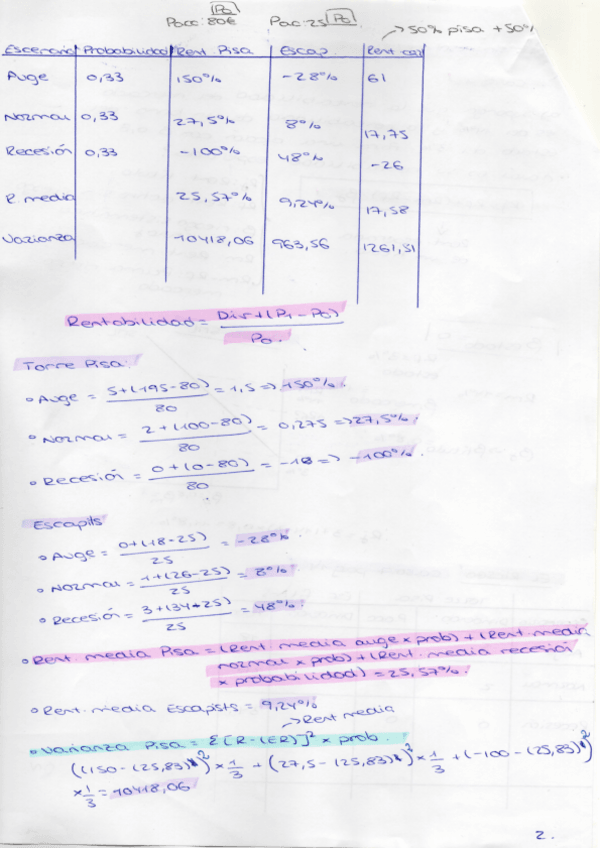 Po
Pacc: 80€
Pac: 25 Po
→ 50% pisa + 50%
Escenario Probabilidad Rent Pisa Escap. Rent car
Auge 0,33 150% -28% 61
Normal 0,33 27,5% 8% 17,75
Recesión 0,33 -100% 48% -26
R. media 25,57% 9,24% 17,58
Varianza 10418,06 963,56 1261,31
Rentabilidad = Div + (P1 - Po)
Po.
Torre Pisa:
• Auge = 5 + (195 - 80) = 1,5 => 150%.
80
• Normal = 2 + (100 - 80) = 0,275 => 27,5%.
80
• Recesión = 0 + (0 - 80) = -1 => -100%.
80
Escapits
• Auge = 0 + (18 - 25) = -28%
25
• Normal = 1 + (26 - 25) = 8%.
25
• Recesión = 3 + (34 - 25) = 48%.
25
• Rent. media Pisa = (Rent. media auge x prob) + (Rent. media
normal x prob) + (Rent. media recesión
x probabilidad) = 25,57%.
• Rent. media Escapists = 9,24%
→ Rent media
• Varianza Pisa = Σ[R - (ER)]² x prob.
((150 - (25,83))² x 1/3 + (27,5 - (25,83))² x 1/3 + (-100 - (25,83))²
x 1/3 = 10418,06
2.